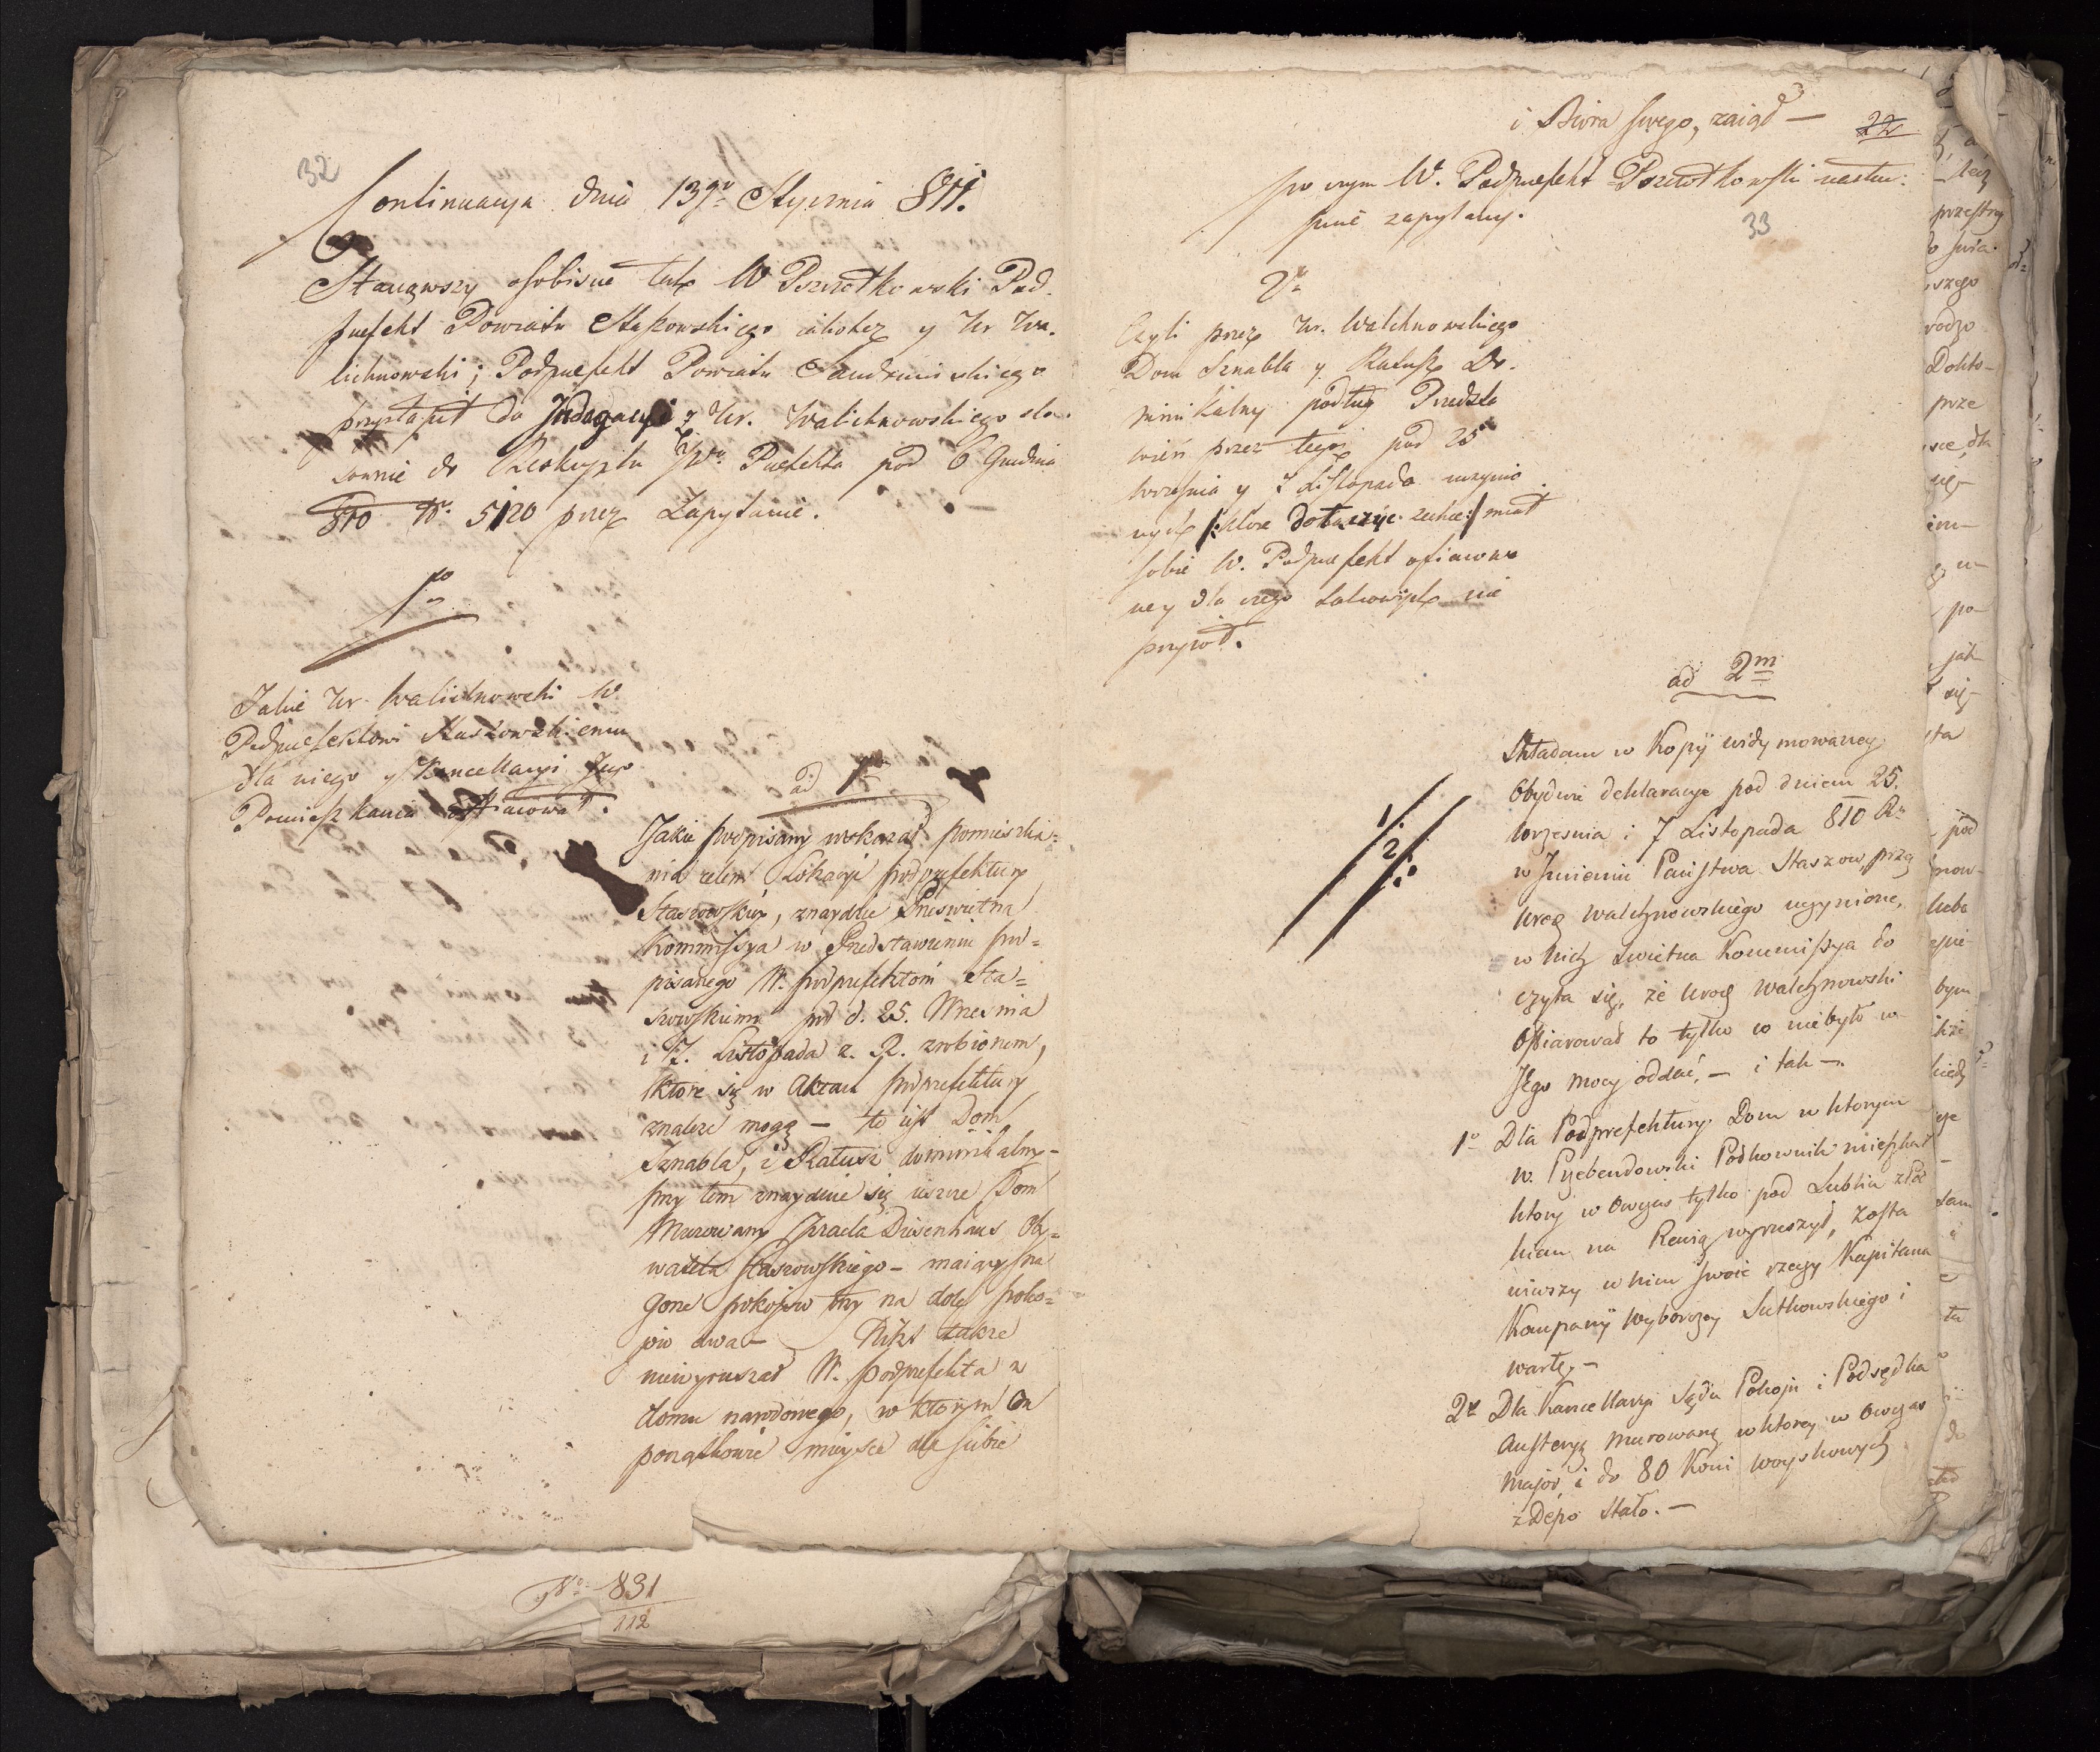 32
Continuacya dnia 13go Stycznia 811.
Stanąwszy osobiscie tak W Pszczołkowski Pod-
prefekt Powiatu Staszowskiego iakotez y Ur Wa-
lichnowski; Podprefekt Powiatu Sandomirskiego
przystąpił do Indagacyi z Ur. Walichnowskiego sto-
sownie do Reskryptu JWo Prefekta pod 6 Grudnia
810 Nr. 5120 przez Zapytanie.
1mo
Jakie Ur. Walichnowski W
Podprefektowi Staszowskiemu
dla niego y Kancellaryi Jego
Pomieszkania offiarował.
ad 1m
Jakie podpisany wskazał pomieszka=
nia celem Lokacyi podprefektury
Staszowskiey, znaydzie Prześwietna
Kommissya w Przedstawieniu pod=
pisanego W. podprefektowi Sta=
szowskiemu pod d. 25. Września
i 7. Listopada z. R. zrobionem,
które się w Aktach podprefektury
znaleźć mogą — to iest Dom
Sznabla, i Ratusz dominikalny -
przy tem znaydzie się ieszcze Dom
Murowany Izraela Diesenhaus Oby=
watela Staszowskiego - maiący na
gorze pokojow trzy na dole poko=
jow dwa — Nikt także
niewyruszał W. podprefekta z
domu narodowego, w którym On
początkowie mieysce dla siebie
No. 831
112
i Biora swego, zaiął —
22
po czym W. Podprefekt Pszczołkowski nastę-
pnie zapytany.
33
2o
Czyli przez Ur. Walichnowskiego
Dom Sznabla y Ratusz Do-
minikalny podług Przedsta
wień przez tegoż pod 25
Września y 7 Listopada uczynio
nych /: które dołączyć zechce :/ miał
sobie W. Podprefekt ofiarowa
ney dla czego takowych nie
przyioł.
ad 2m
1.
2.
Składam w Kopij widymowaney
Obydwie deklaracye pod dniem 25.
Września i 7 Listopada 810 Ro
w Imieniu Państwa Staszow, przez
Uroę Walichnowskiego uczynione,
w nich Swietna Kommissya do
czyta się, że Uroę Walichnowski
Offiarował to tylko co niebyło w
Jego mocy oddać, — i tak —
1o Dla Podprefektury Dom w ktorym
W. Pzebendowski Połkownik mieszkał
ktory w owczas tylko pod Lublin z Poł
kiem na Rewią wyruszył, zosta
wiwszy w nim swoie rzeczy Kapitana
Kompanij Wyborczey Sutkowskiego i
wartę. —
2o Dla Kancellaryi Sądu Pokoju i Podsędka
Austeryą murowaną w ktorey w owczas
Major, i do 80 Koni woyskowych
z Depo stało. —